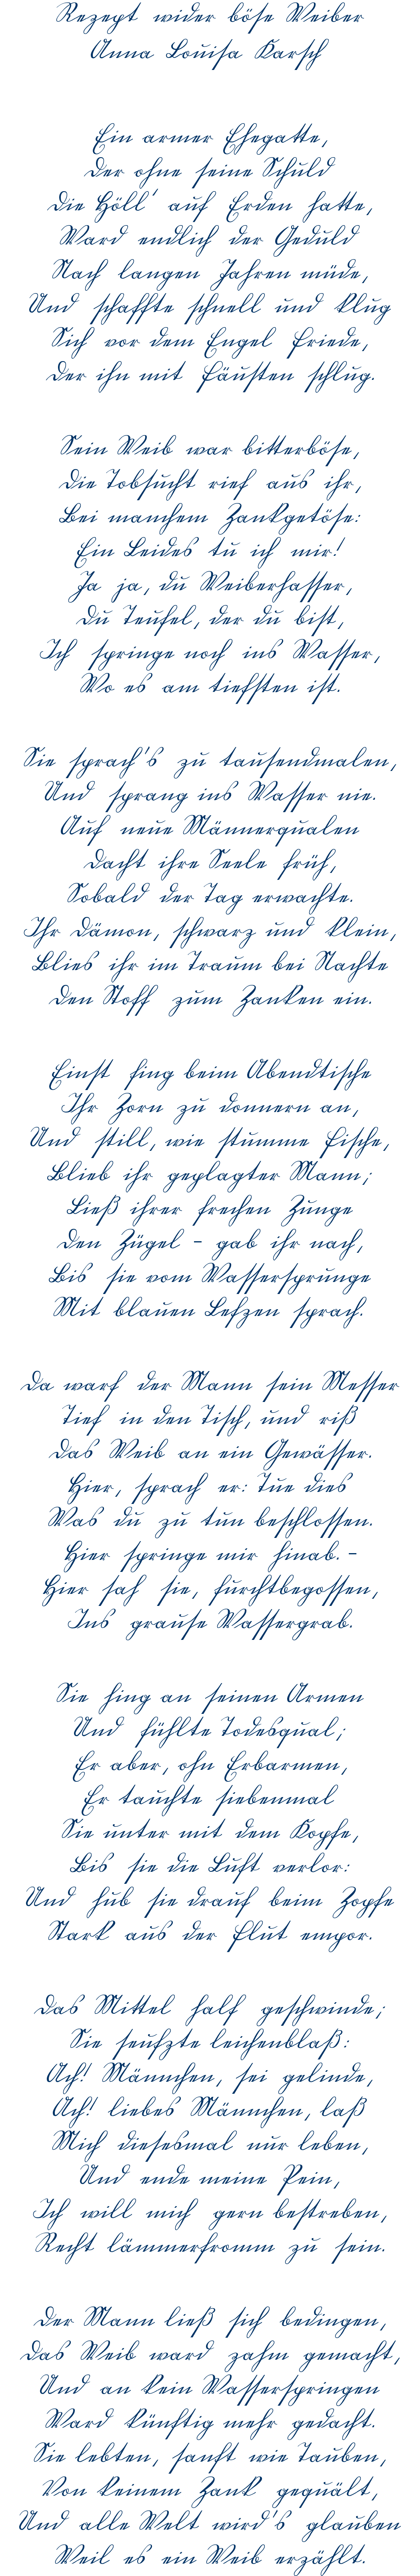 Rezept wider böse Weiber
Anna Louisa Karsch
Ein armer Ehegatte,
Der ohne seine Schuld
Die Höll' auf Erden hatte,
Ward endlich der Geduld
Nach langen Jahren müde,
Und schaffte schnell und klug
Sich vor dem Engel Friede,
Der ihn mit Fäusten schlug.
Sein Weib war bitterböse,
Die Tobsucht rief aus ihr,
Bei manchem Zankgetöse:
Ein Leides tu ich mir!
Ja ja, du Weiberhasser,
Du Teufel, der du bist,
Ich springe noch ins Wasser,
Wo es am tiefsten ist.
Sie sprach's zu tausendmalen,
Und sprang ins Wasser nie.
Auf neue Männerqualen
Dacht ihre Seele früh,
Sobald der Tag erwachte.
Ihr Dämon, schwarz und klein,
Blies ihr im Traum bei Nachte
Den Stoff zum Zanken ein.
Einst fing beim Abendtische
Ihr Zorn zu donnern an,
Und still, wie stumme Fische,
Blieb ihr geplagter Mann;
Ließ ihrer frechen Zunge
Den Zügel – gab ihr nach,
Bis sie vom Wassersprunge
Mit blauen Lefzen sprach.
Da warf der Mann sein Messer
Tief in den Tisch, und riß
Das Weib an ein Gewässer.
Hier, sprach er: Tue dies
Was du zu tun beschlossen.
Hier springe mir hinab. –
Hier sah sie, furchtbegossen,
Ins grause Wassergrab.
Sie hing an seinen Armen
Und fühlte Todesqual;
Er aber, ohn Erbarmen,
Er tauchte siebenmal
Sie unter mit dem Kopfe,
Bis sie die Luft verlor:
Und hub sie drauf beim Zopfe
Stark aus der Flut empor.
Das Mittel half geschwinde;
Sie seufzte leichenblaß:
Ach! Männchen, sei gelinde,
Ach! liebes Männchen, laß
Mich diesesmal nur leben,
Und ende meine Pein,
Ich will mich gern bestreben,
Recht lämmerfromm zu sein.
Der Mann ließ sich bedingen,
Das Weib ward zahm gemacht,
Und an kein Wasserspringen
Ward künftig mehr gedacht.
Sie lebten, sanft wie Tauben,
Von keinem Zank gequält,
Und alle Welt wird's glauben
Weil es ein Weib erzählt.